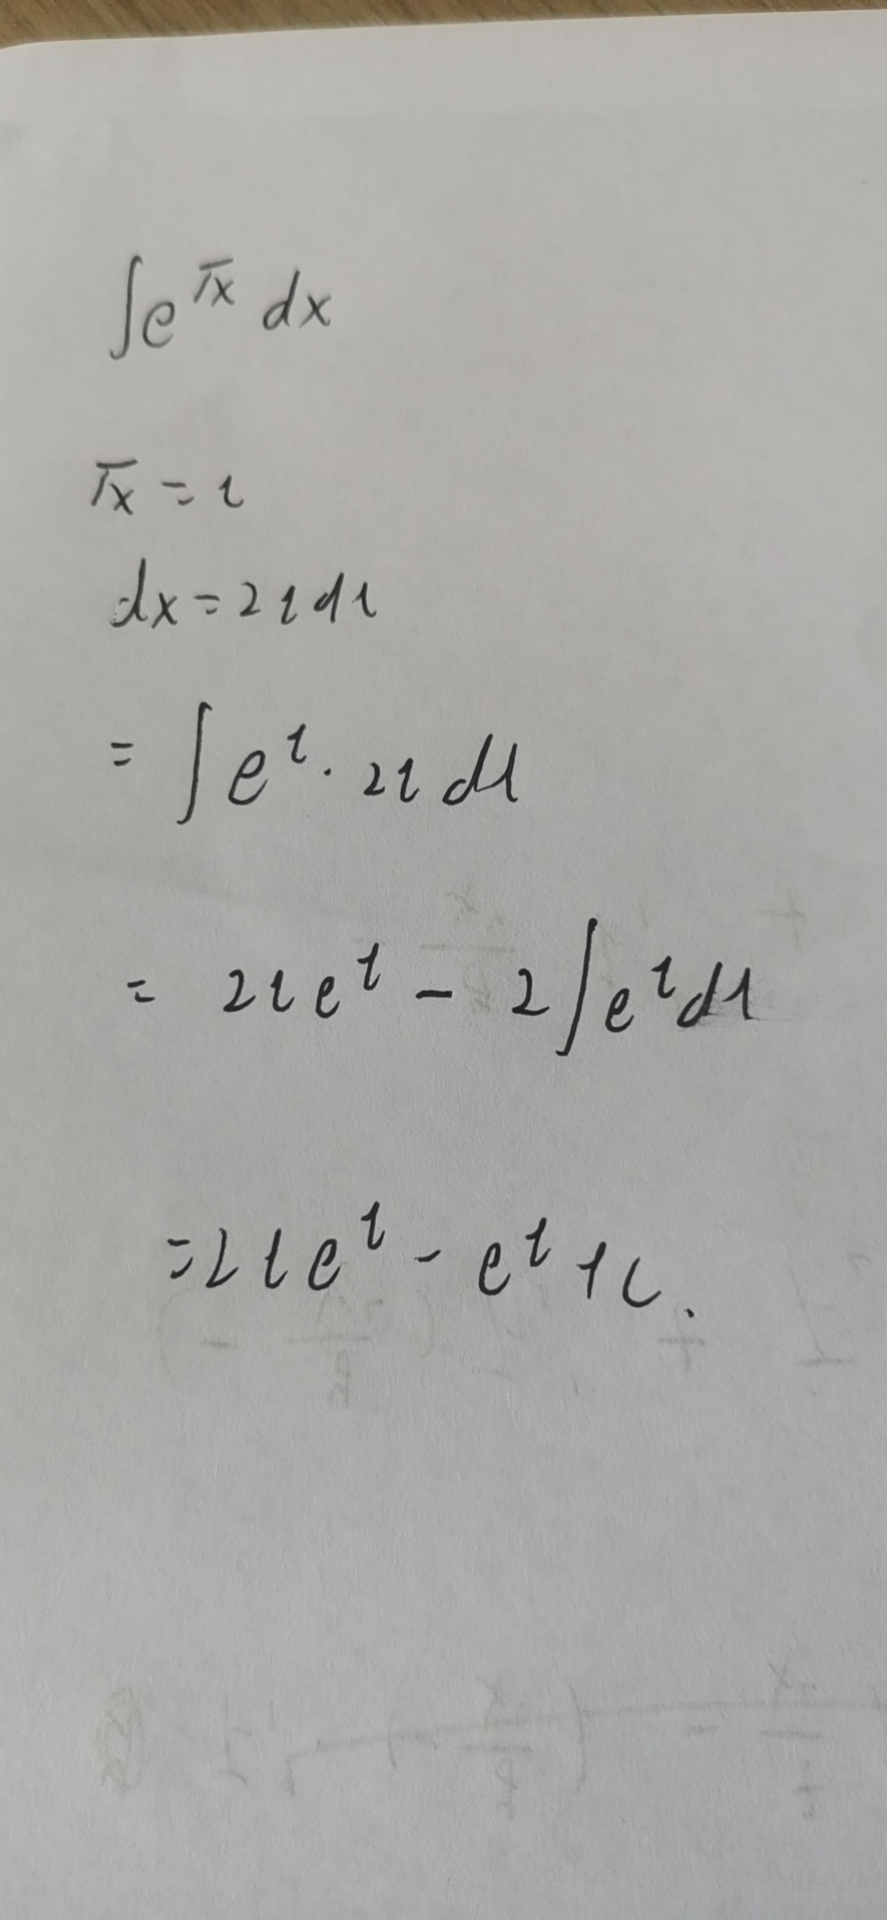 ∫e^√x dx
√x = t
dx = 2t dt
= ∫ e^t · 2t dt
= 2t e^t - 2∫e^t dt
= 2t e^t - e^t + c.